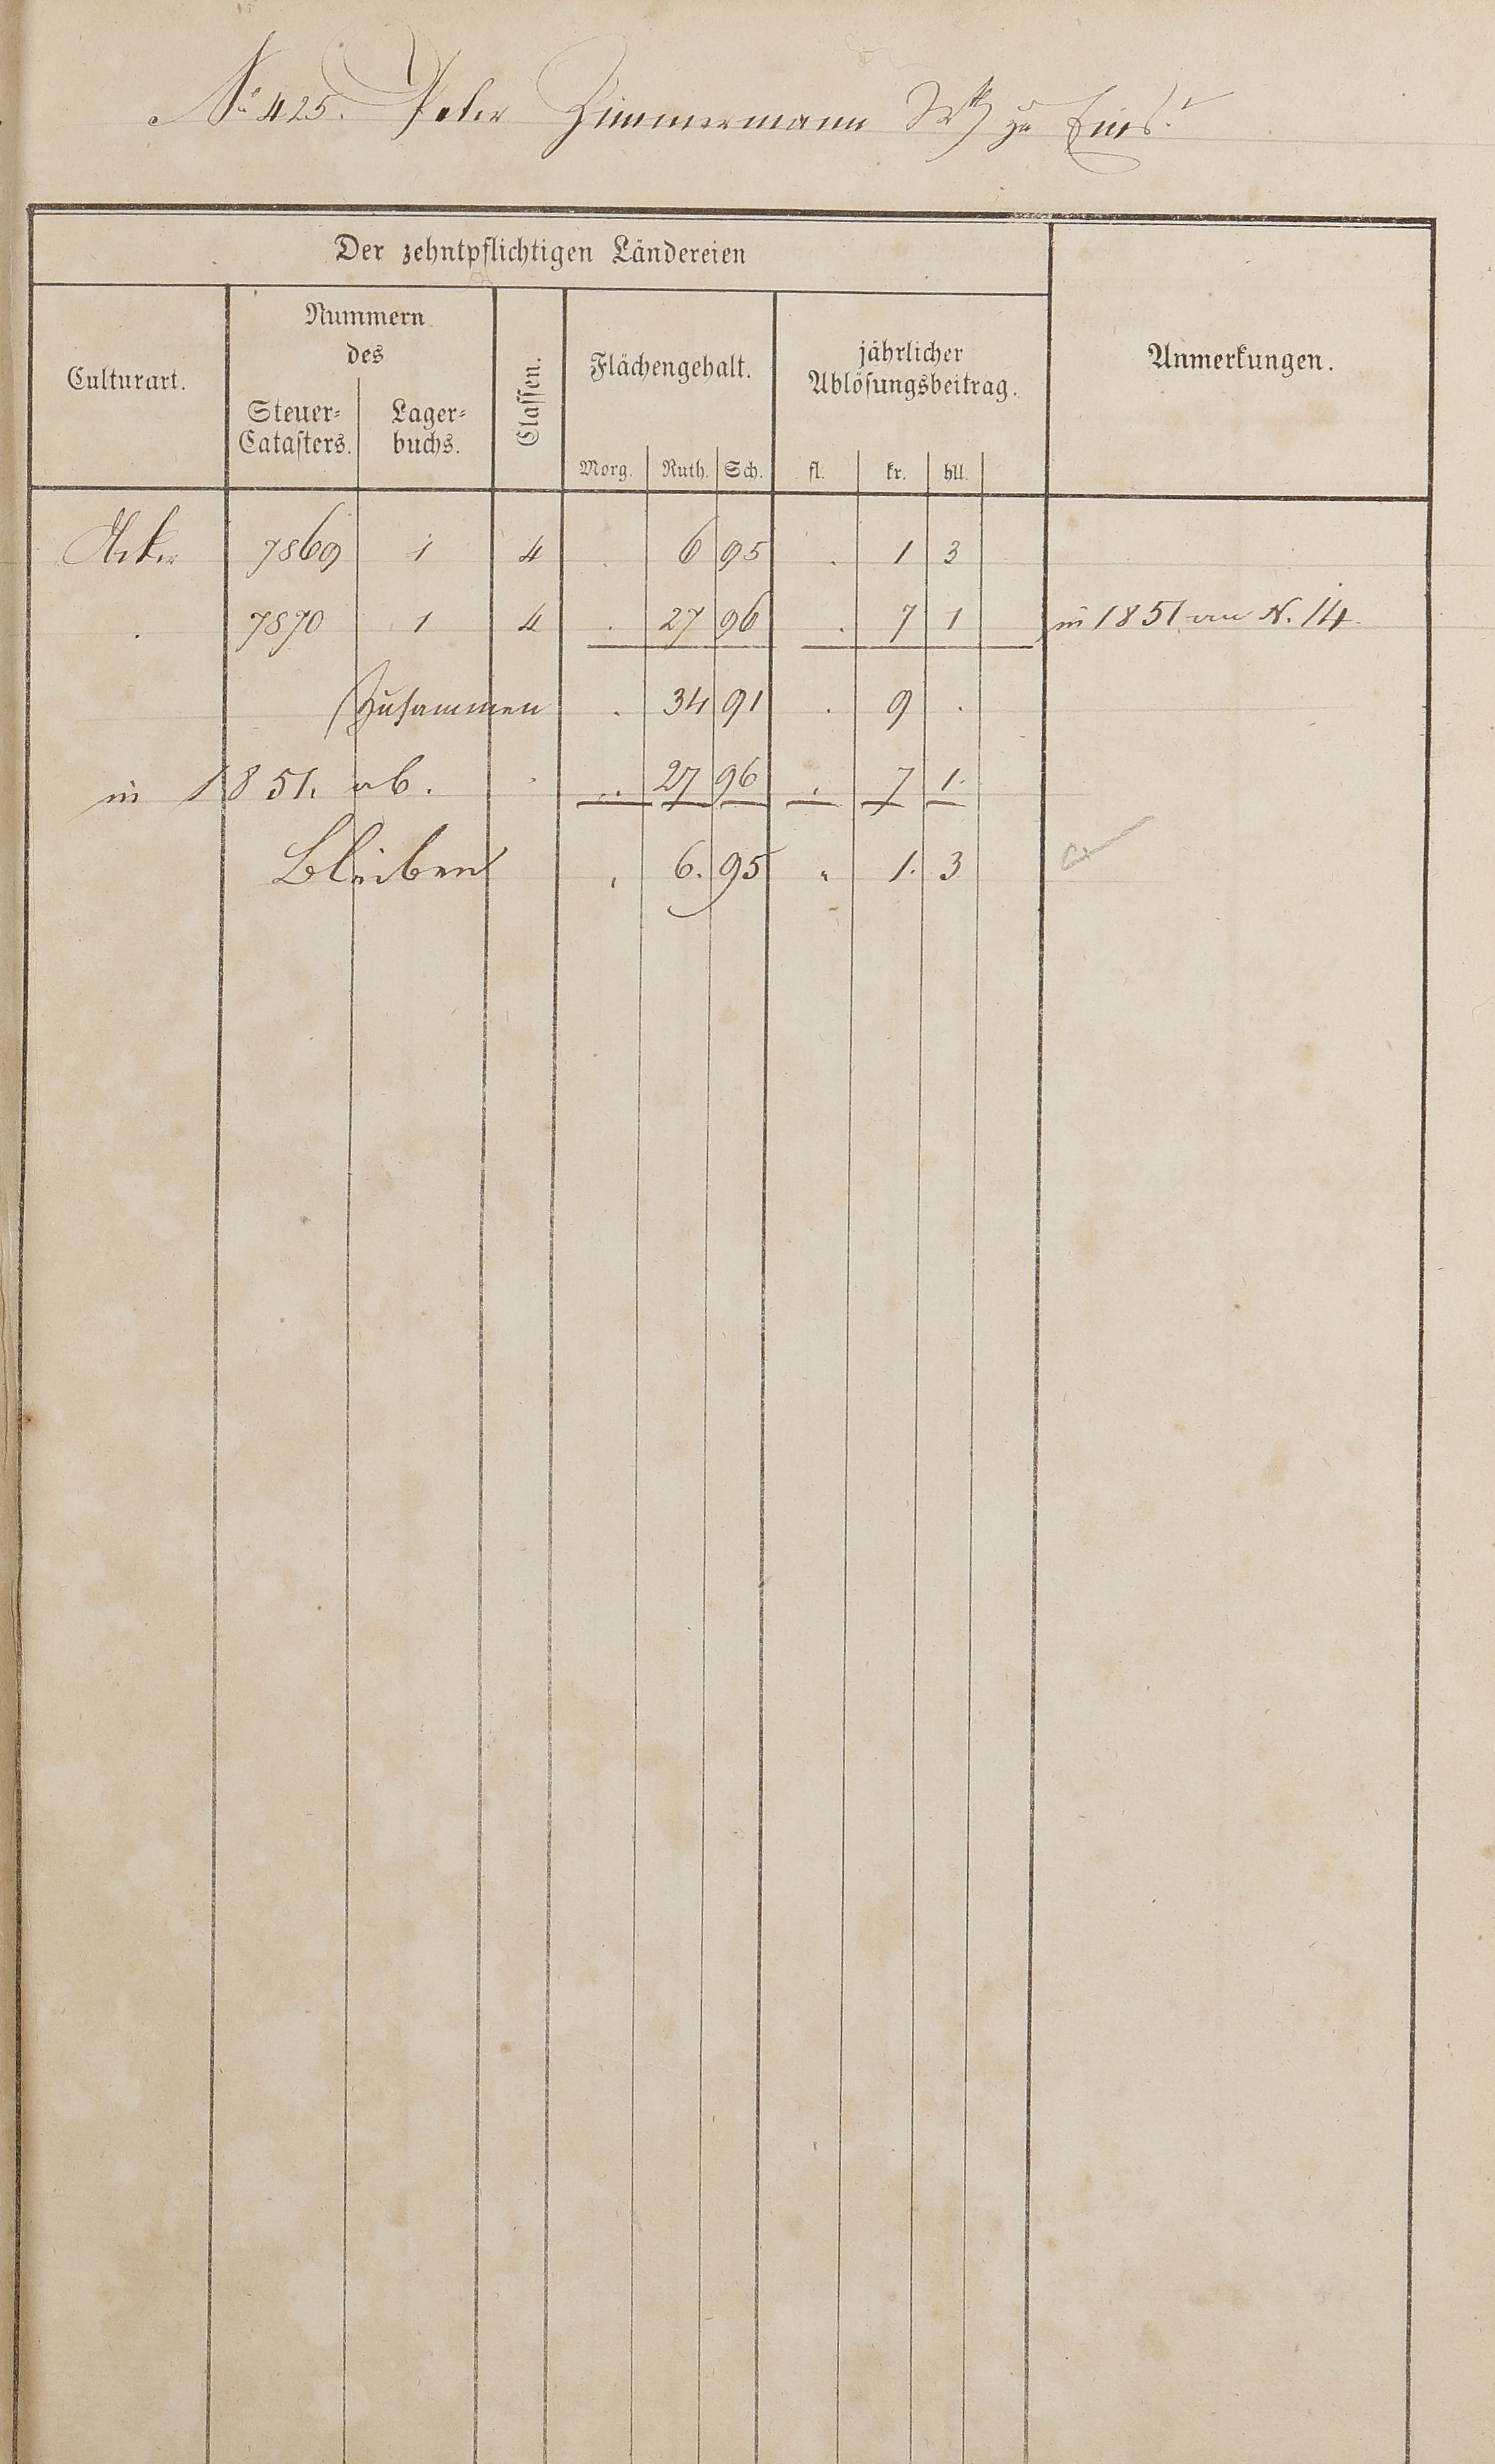 No 425. Peter Zimmermann zu Ems.
Der zehntpflichtigen Ländereien
Culturart.
Nummern
des
Steuer-Catasters.
Lager-buchs.
Classen.
Flächengehalt.
Morg. Ruth. Sch.
jährlicher
Ablösungsbeitrag.
fl. kr. hll.
Anmerkungen.
Acker 7869 1 4 . 6 95 . 1 3
. 7870 1 4 . 27 96 . 7 1 in 1851 an N. 14.
Zusammen . 34 91 . 9 .
in 1851. ab. . 27 96 . 7 1.
Bleiben . 6. 95 " 1. 3